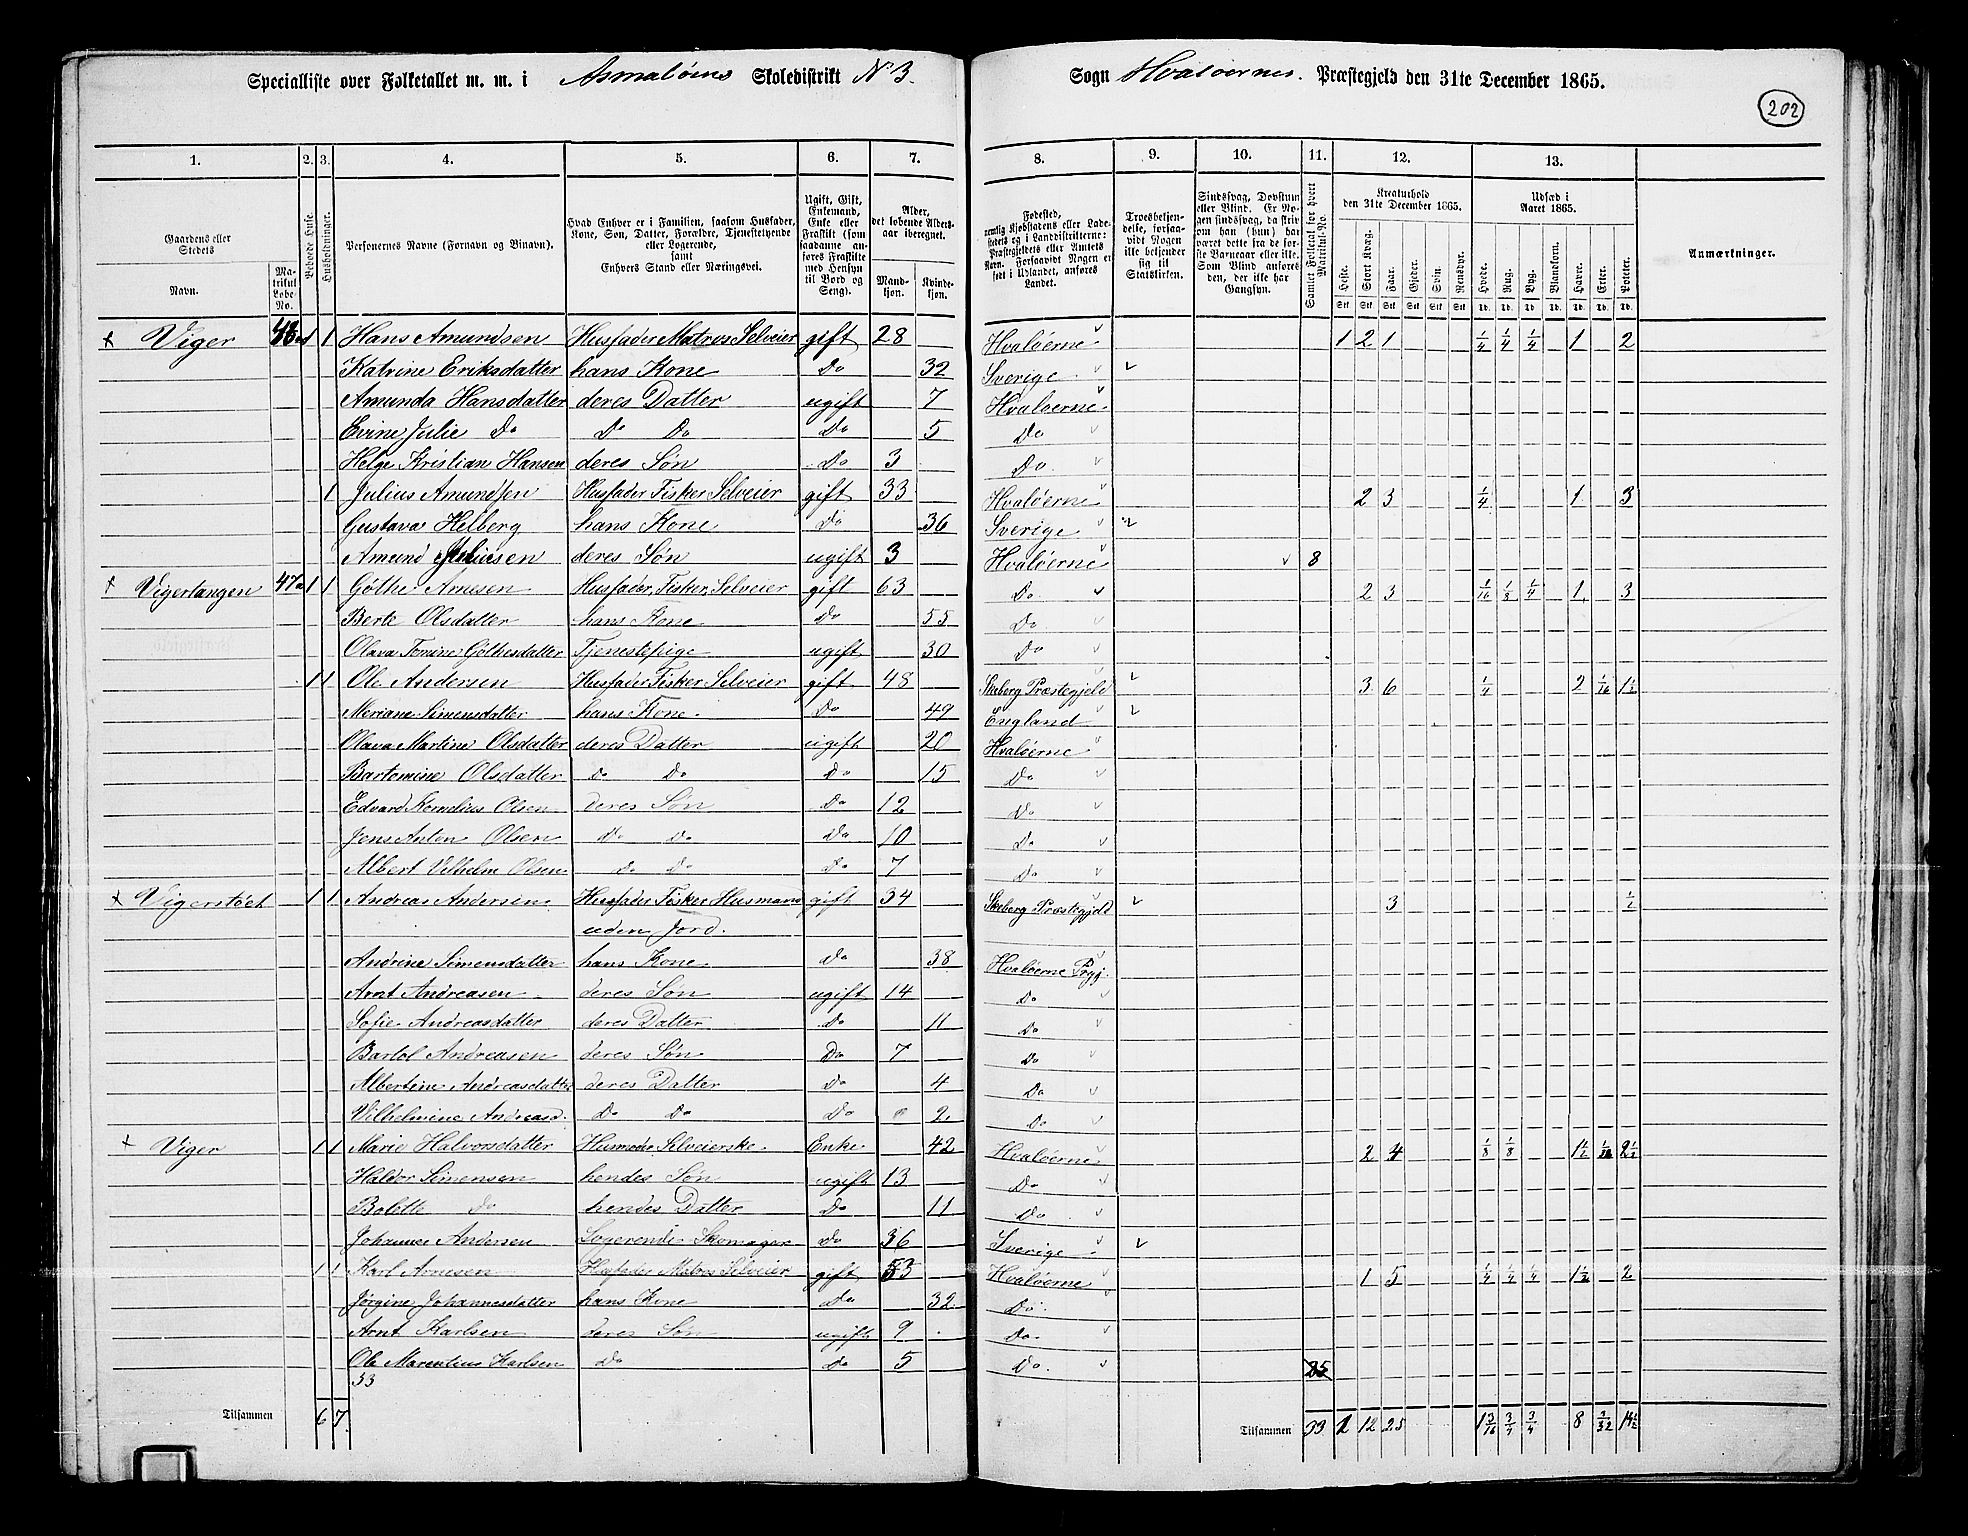 Specialliste over Folketallet m. m. i Asmaløens Skoledistrikt No 3. Sogn Hvaløernes Præstegjeld den 31te December 1865.
202
1. 2. 3. 4. 5. 6. 7. 8. 9. 10. 11. 12. 13.
Gaardens eller Stedets Navn. Matrikul Løbe-No. Beboede Huse. Husholdninger. Personernes Navne (Fornavn og Binavn). Hvad Enhver er i Familien, saasom Husfader, Kone, Søn, Datter, Forældre, Tjenestetyende eller Logerende, samt Enhvers Stand eller Næringsvei. Ugift, Gift, Enkemand, Enke eller Fraskilt (som saadanne anføres Fraskilte med Hensyn til Bord og Seng). Alder, det løbende Alders-aar iberegnet. Mandkjøn. Kvindekjøn. Fødested, nemlig Kjøbstadens eller Ladestedets og i Landdistrikterne: Præstegjeldets eller Amtets Navn. Forsaavidt Nogen er født i Udlandet, anføres Landet. Troesbekjendelse, forsaavidt Nogen ikke bekjender sig til Statskirken. Sindssvag, Døvstum eller Blind. Er Nogen sindssvag, da skrives om han (hun) har været dette fra de første Barneaar eller ikke. Som Blind anføres den, der ikke har Gangsyn. Samlet Folketal for hvert Matrikul-No. Kreaturhold den 31te December 1865. Heste. Stort Kvæg. Faar. Gjeder. Svin. Rensdyr. Udsæd i Aaret 1865. Hvede. Rug. Byg. Blandkorn. Havre. Erter. Poteter. Anmærkninger.
Viger 1 1 Hans Amundsen Husfader Matros Selveier gift 28 Hvaløerne 1 2 1 1/4 1/4 1/4 1 2
Katrine Eriksdatter hans Kone Do 32 Sverige
Amunda Hansdatter deres Datter ugift 7 Hvaløerne
Evine Julie Do Do Do Do 5 Do
Helge Kristian Hansen deres Søn Do 3 Do
1 Julius Amundsen Husfader Fisker Selveier gift 33 Hvaløerne 2 3 1/4 1 3
Gustava Helberg hans Kone Do 36 Sverige
Amund Juliusen deres Søn ugift 3 Hvaløerne 8
Vigertangen 47a 1 1 Göthe Arnesen Husfader, Fisker, Selveier gift 63 Do 2 3 1/16 1/8 1/4 1 3
Berte Olsdatter hans Kone Do 55 Do
Olava Tomine Göthesdatter Tjenestepige ugift 30 Do
1 1 Ole Andersen Husfader Fisker Selveier gift 48 Skeberg Præstegjeld 3 6 1/4 2 1/16 1 1/2
Meriane Simensdatter hans Kone Do 49 England
Olava Martine Olsdatter deres Datter ugift 20 Hvaløerne
Bartomine Olsdatter Do Do Do 15 Do
Edvard Kornelius Olsen deres Søn Do 12 Do
Jens Anton Olsen Do Do Do 10 Do
Albert Vilhelm Olsen Do Do Do 7 Do
Vigerstøet 1 1 Andreas Andersen Husfader Fisker Husmand gift 34 Skeberg Præstegjeld 3 1/2
uden Jord.
Andrine Simensdatter hans Kone Do 38 Hvaløerne Prgj.
Arnt Andreasen deres Søn ugift 14 Do
Sofie Andreasdatter deres Datter Do 11 Do
Bartol Andreasen deres Søn Do 7 Do
Albertine Andreasdatter deres Datter Do 4 Do
Vilhelmine Andreasd. Do Do Do 2 Do
Viger 1 1 Marie Halvorsdatter Husmoder Selveierske Enke 42 Hvaløerne 2 4 1/8 1/8 1 1/2 2 1/2
Haldor Simensen hendes Søn ugift 13 Do
Bolette Do hendes Datter Do 11 Do
Johannes Andersen Logerende Skomager Do 36 Sverige
1 1 Karl Arnesen Husfader Matros Selveier gift 33 Hvaløerne 1 5 1/4 1/4 1/4 1 1/2 2
Jørgine Johannesdatter hans Kone Do 32 Do
Arnt Karlsen deres Søn ugift 9 Do
Ole Marentius Karlsen Do Do 5 Do 25
33
Tilsammen 6 7 Tilsammen 33 1 12 25 1 3/16 3/4 3/4 8 3/32 14 1/2